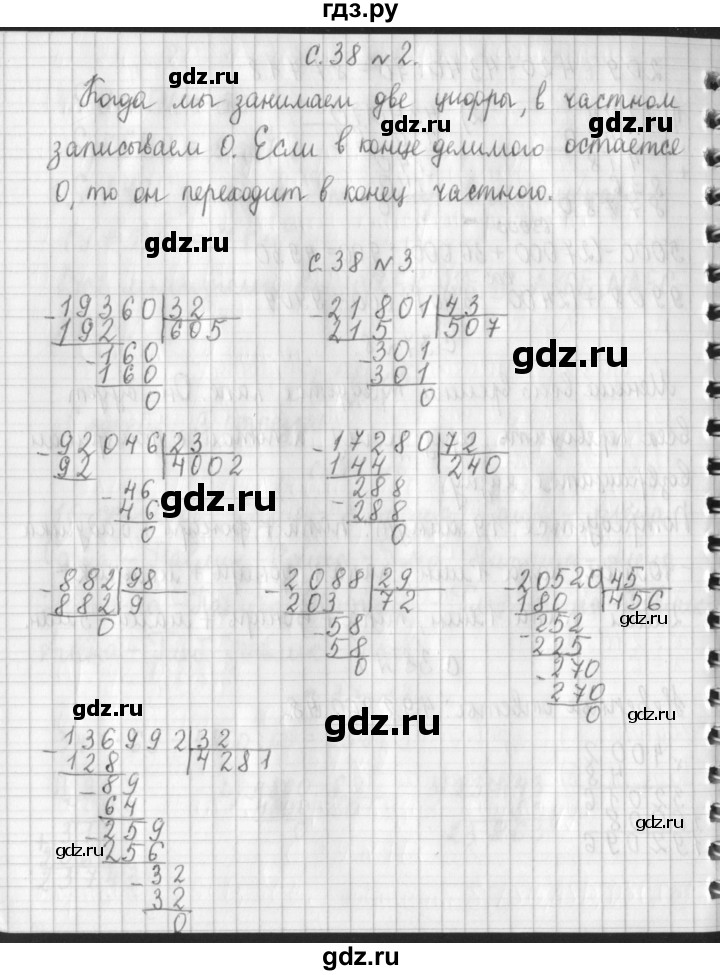 гдз.ру
с. 38 № 2.
Когда мы занимаем две цифры, в частном
записываем 0. Если в конце делимого остаётся
0, то он переходит в конец частного.
с. 38 № 3
-19360|32
192 |605
-160
160
0
-21801|43
215 |507
-301
301
0
-92046|23
92 |4002
-46
46
0
-17280|72
144 |240
-288
288
0
-882|98
882|9
0
-2088|29
203 |72
-58
58
0
-20520|45
180 |456
-252
225
-270
270
0
-136992|32
128 |4281
-89
64
-259
256
-32
32
0
gdz.ru
gdz.ru
gdz.ru
gdz.ru
gdz.ru
gdz.ru
gdz.ru
gdz.ru
gdz.ru
gdz.ru
gdz.ru
gdz.ru
gdz.ru
gdz.ru